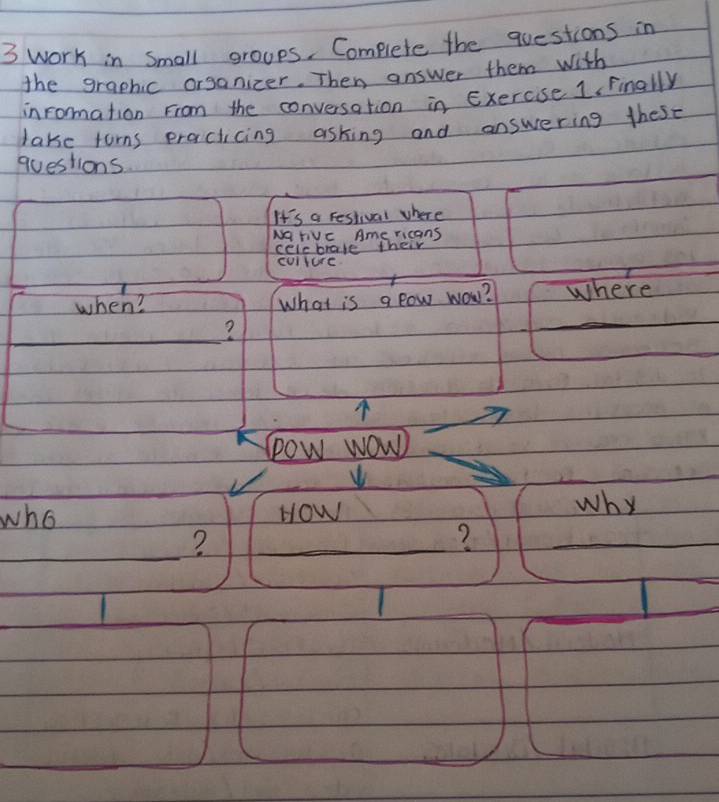 3 Work in small groups. Complete the questions in
the graphic organizer. Then answer them with
information from the conversation in Exercise 1. Finally
take turns practicing asking and answering these
questions.
It's a Festival where
Native Americans
celebrate their
culture.
when?
?
What is a Pow wow?
Where
POW WOW
Who
?
HOW
?
Why